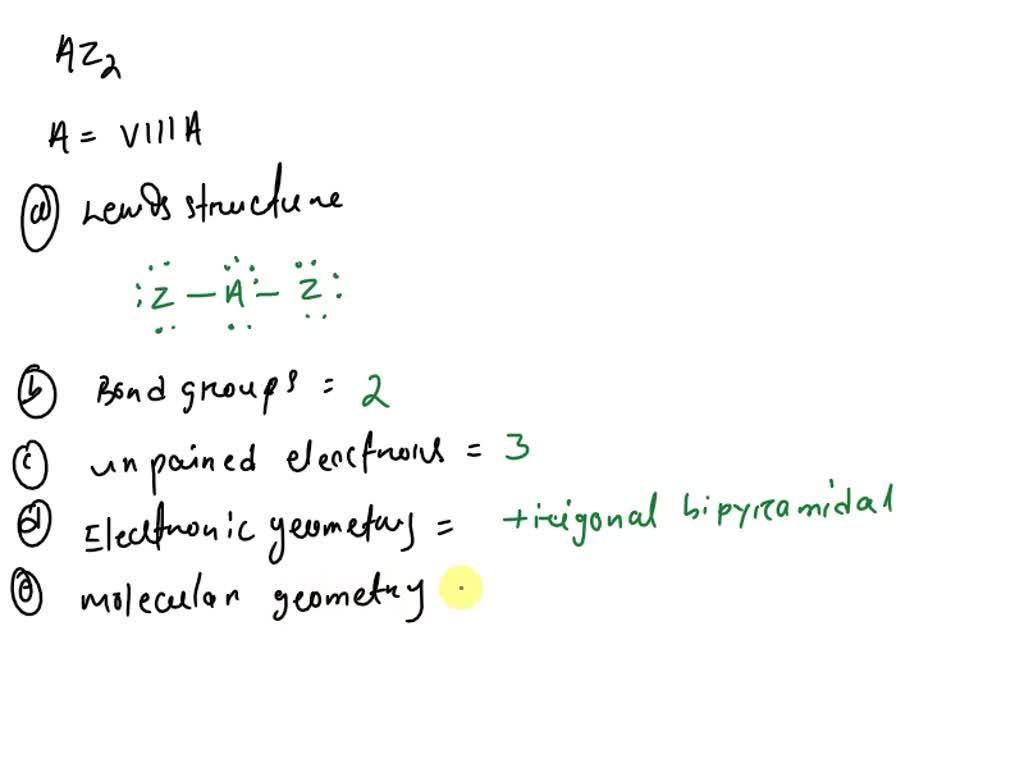 AZ2
A = VIIIA
(a) Lewis structure
:Z – A – Z:
(b) Bond groups = 2
(c) unpained electrons = 3
(d) Electronic geometry = trigonal bipyramidal
(e) molecular geometry